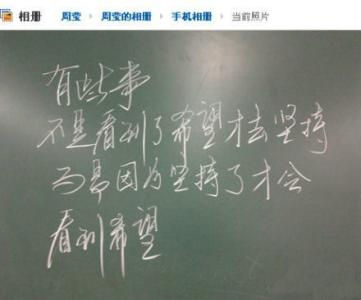 相册 周莹 ▸ 周莹的相册 ▸ 手机相册 ▸ 当前照片
有些事
不是看到了希望才去坚持
而是因为坚持了才会
看到希望